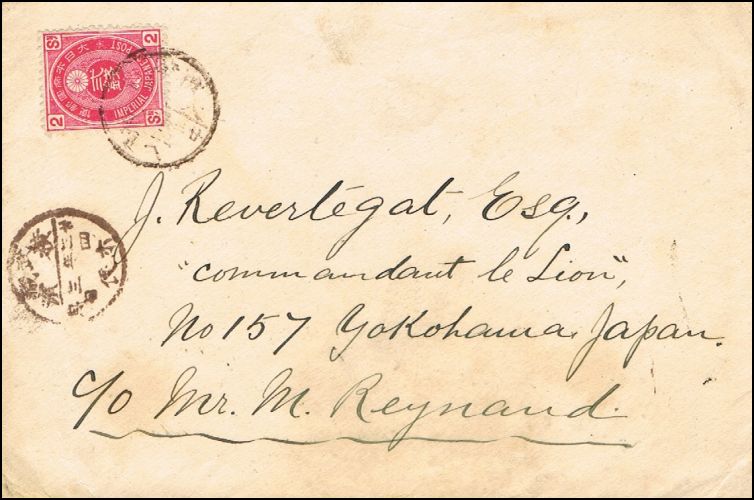 2 Sⁿ
大日本帝国郵便
IMPERIAL JAPANESE POST
2 Sⁿ
J. Revertégat, Esq.,
"commandant le Lion",
No 157 Yokohama, Japan.
c/o Mr. M. Reynaud.